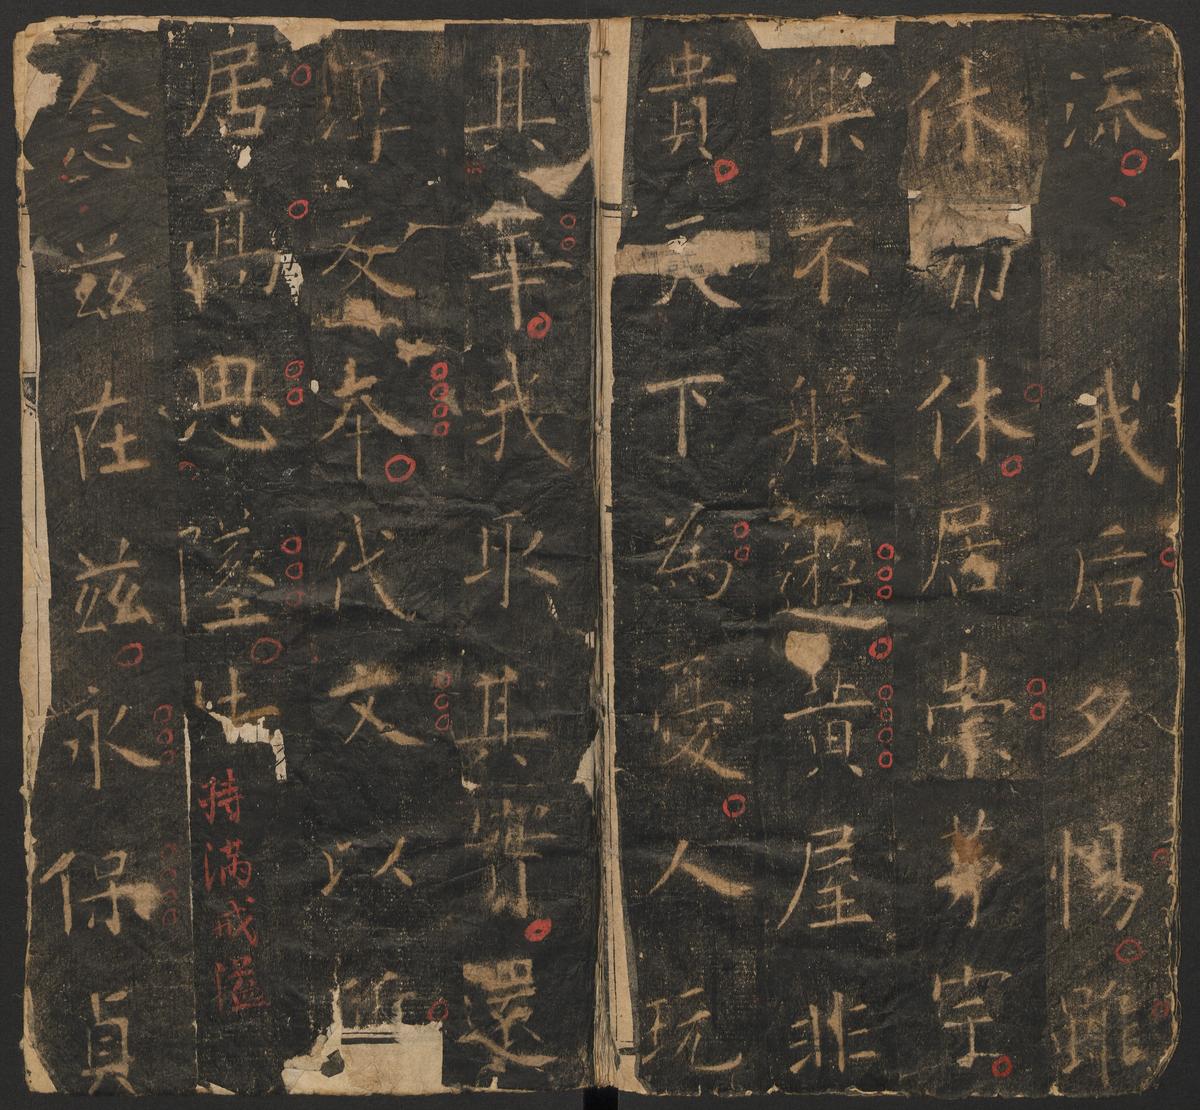 流我后夕惕雖
休弗休居崇茅宇
樂不般遊黃屋非
貴天下為憂人玩
其華我取其實還
淳反夲代文以質
居高思墜持滿戒溢
念茲在茲永保貞